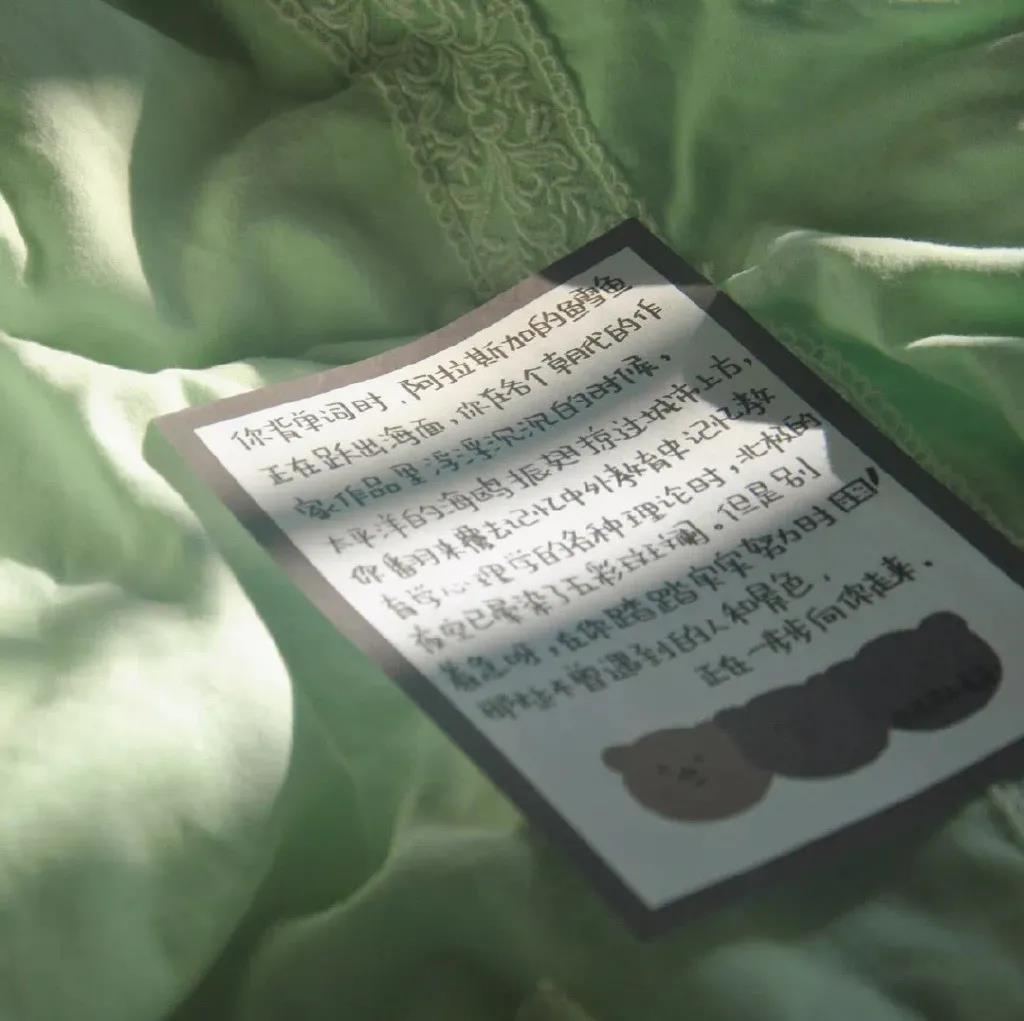 你背单词时,阿拉斯加的鳕鱼
正在跃出海面,你在各个朝代的作
家作品里浮浮沉沉的时候,
太平洋的海鸥振翅掠过城市上方,
你翻来覆去记忆中外教育史记忆教
育学心理学的各种理论时,北极的
夜空已晕染了五彩斑斓。但是别
着急呀,在你踏踏实实努力时
那些不曾遇到的人和景色,
正在一步步向你走来.